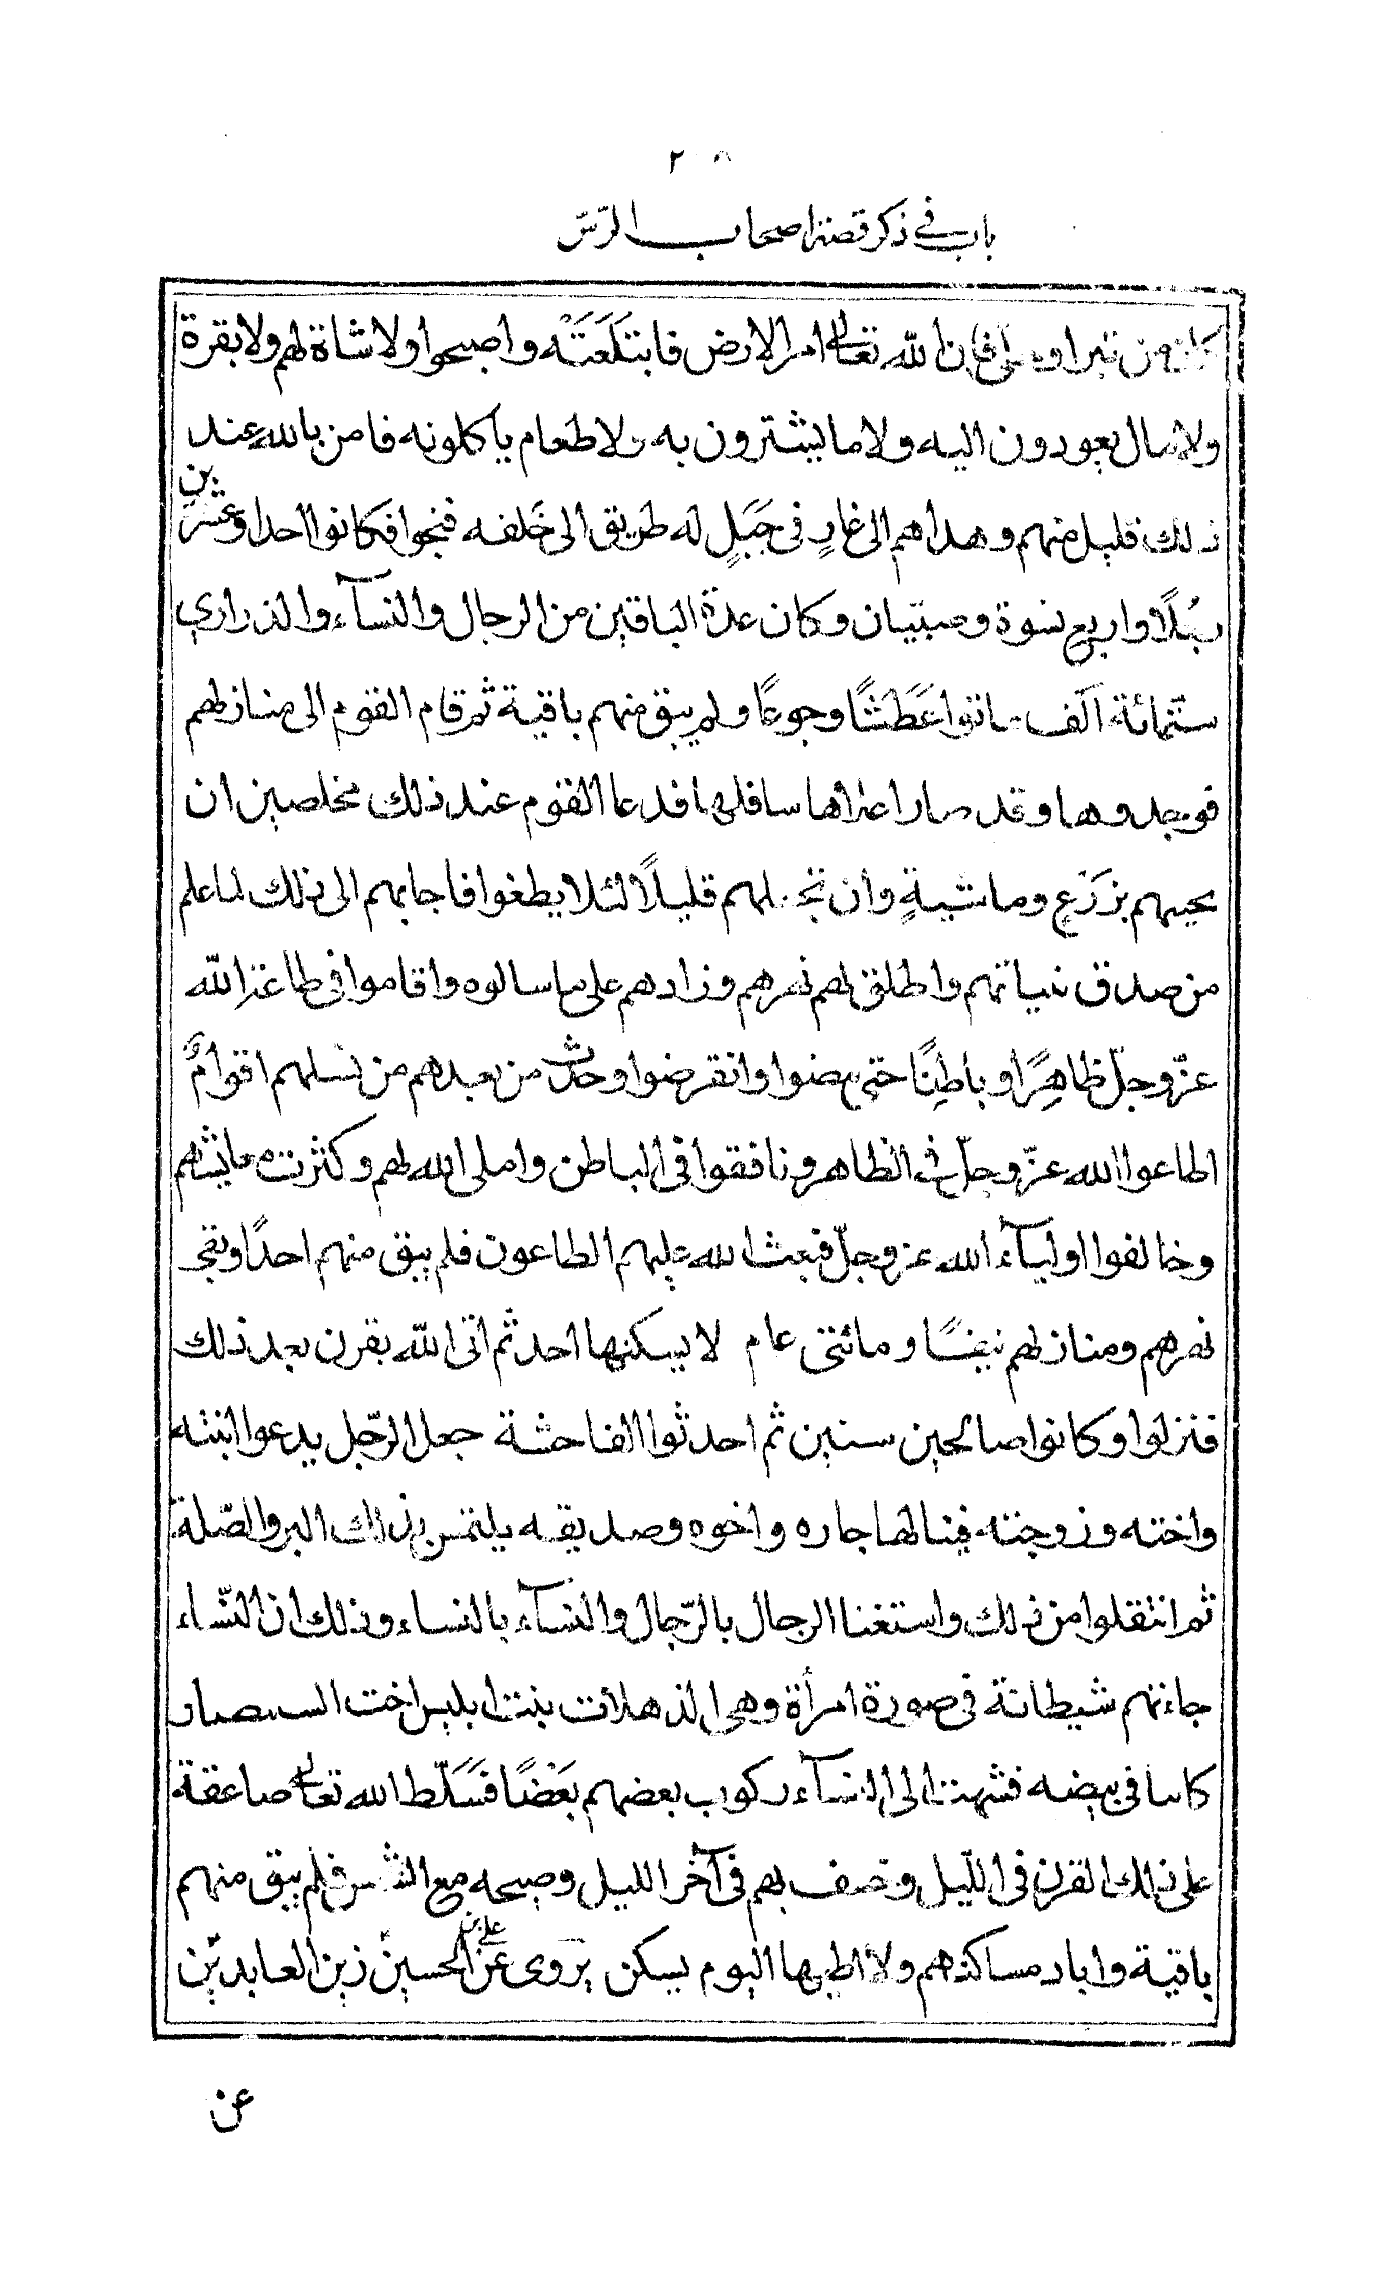 باب في ذكر قصة اصحاب الرّسّ
من تبر او فان الله تعالى امر الارض فابتلَعَتْه واصبحوا ولا شاة لهم ولا بقرة
ولا مال يعودون اليه ولا ما يشترون به ولا طعام ياكلونه فامن بالله عند
ذلك قليل منهم وهداهم الى غارٍ في جَبَلٍ له طريق الى خَلفه فنجوا فكانوا احدا وعشرين
رجُلًا واربع نسوة وصبيان وكان عدّة الباقين من الرجال والنسآء والذراري
ستّمائة الَف ماتوا عَطَشًا وجوعًا ولم يبق منهم باقية ثم قام القوم الى منازلهم
فوجدوها وقد صار اعلاها سافلها فدعا القوم عند ذلك مخلصين ان
يحيهم بزَرْعٍ وماشيةٍ وان قليلًا لئلا يطغوا فاجابهم الى ذلك لما علم
من صدق نياتهم واطلق لهم نهرهم وزادهم على ما سالوه واقاموا في طاعة الله
عزّ وجلّ ظاهِرًا وباطِنًا حتى مضوا وانقرضوا وحدث من بعدهم من نسلهم اقوامٌ
اطاعوا الله عزّ وجلّ في الظاهر ونافقوا في الباطن واملى الله لهم وكثرت معايشهم
وخالفوا اوليآء الله عز وجلّ فبعث الله عليهم الطاعون فلم يبق منهم احدًا وبقى
نهرهم ومنازلهم نيفًا ومائتى عام لا يسكنها احد ثم اتى الله بقرن بعد ذلك
فنزلوا وكانوا صالحين سنين ثم احدثوا الفاحشة جعل الرّجل يدعوا ابنته
واخته وزوجته فينالها جاره واخوه وصديقه يلتمس بذلك البر والصّلة
ثم انتقلوا من ذلك واستغنا الرجال بالرّجال والنسآء بالنساء وذلك ان النّساء
جاءتهم شيطانة في صورة امرأة وهى الذهلات بنت ابليس اخت السيصار
كانا في بيضه فشهت الى النسآء ركوب بعضهم بَعْضًا فَسَلّط الله تعالى صاعقة
على ذلك القرن في اللّيل وخسف بهم في آخر الليل وصيحه مع الشمس فلم يبق منهم
باقية وابار مساكنهم ولا اظنها اليوم يسكن يروى عن على بن الحسين زين العابدين
عن